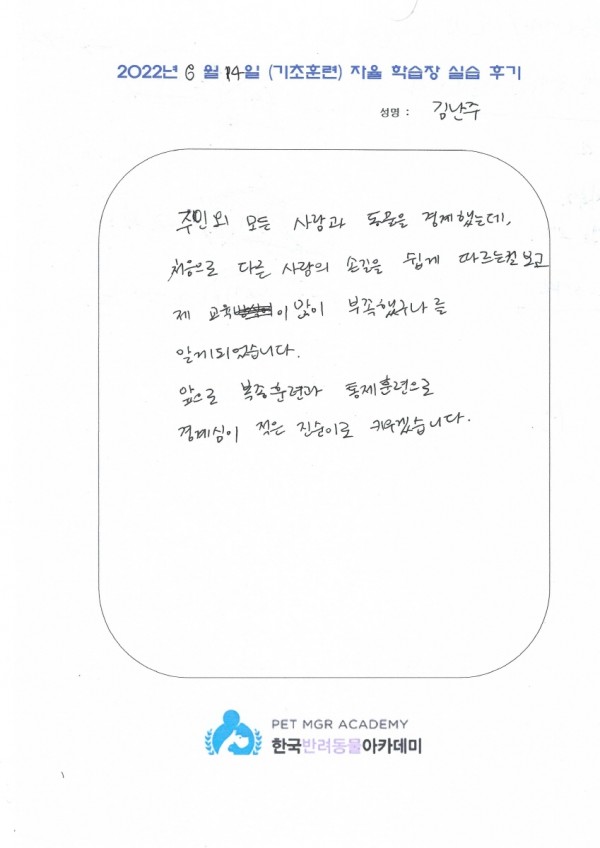 2022년 6월 14일 (기초훈련) 자율 학습장 실습 후기
성명 : 김난주
주인외 모든 사람과 동물을 경계했는데,
처음으로 다른 사람의 손길을 쉽게 따르는걸 보고
제 교육이 많이 부족했구나를
알게되었습니다.
앞으로 복종훈련과 통제훈련으로
경계심이 적은 진순이로 키우겠습니다.
PET MGR ACADEMY
한국반려동물아카데미